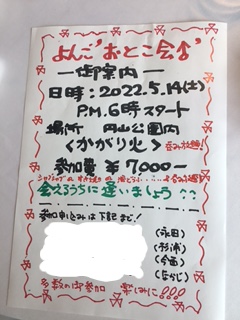 よんご"おとこ会♂"
―御案内―
日時:2022.5.14(土)
P.M.6時スタート
場所 円山公園内
<かがり火>
参加費 ¥7000-
会えるうちに逢いましょう
参加申込みは下記まで!
(永田)
(杉浦)
(今西)
多数の御参加 楽しみに!!!